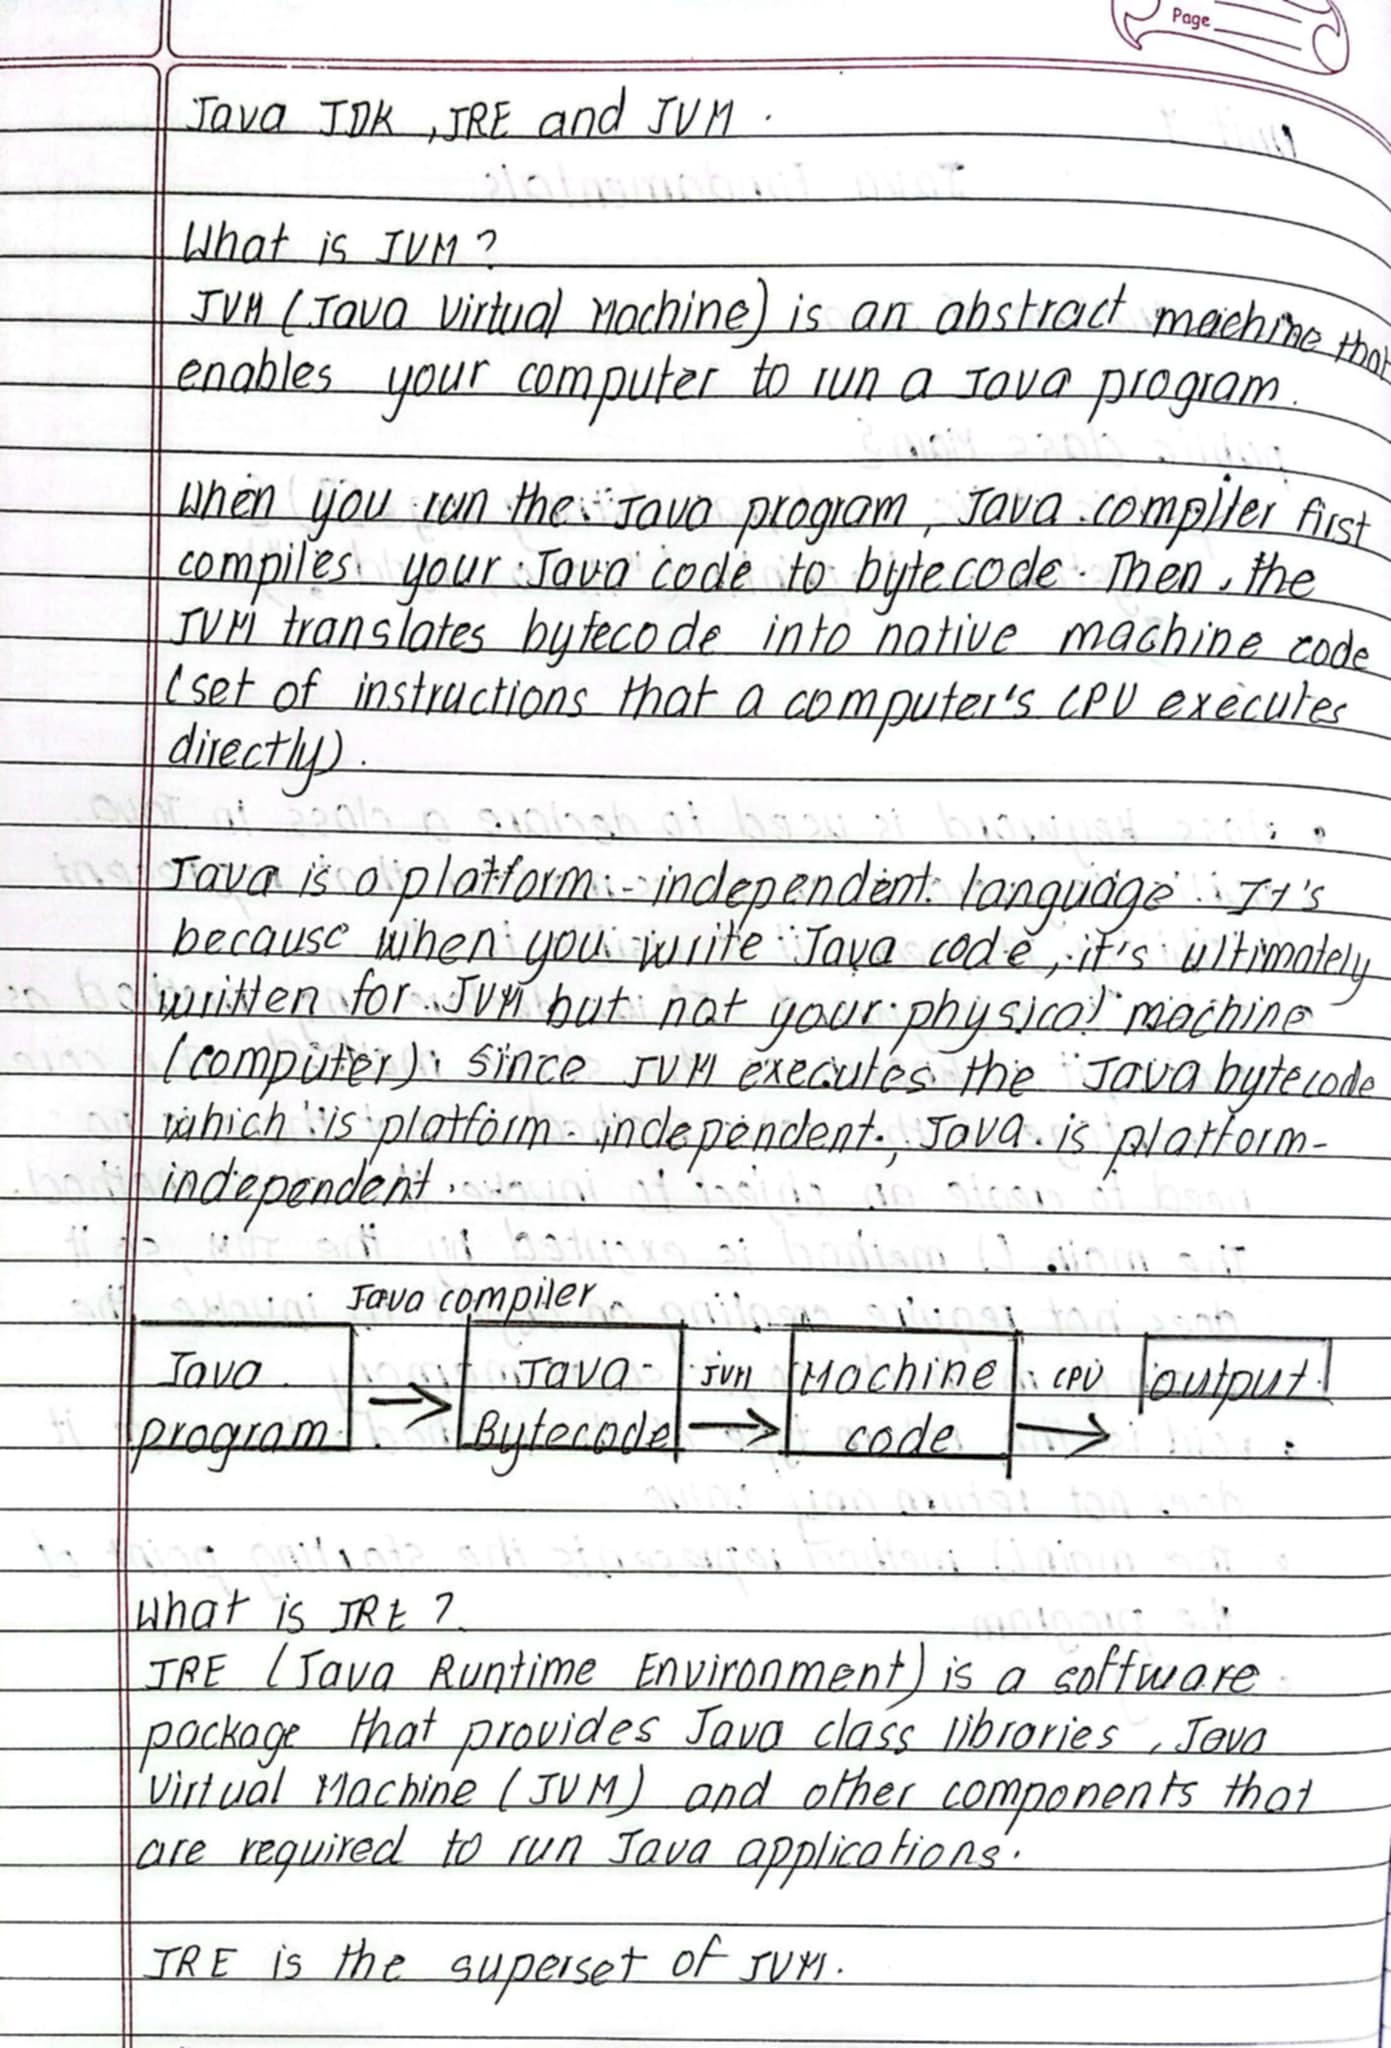 Page
Java JDK, JRE and JVM.
What is JVM?
JVM (Java Virtual Machine) is an abstract machine that
enables your computer to run a Java program.
When you run the Java program, Java compiler first
compiles your Java code to bytecode. Then, the
JVM translates bytecode into native machine code
(set of instructions that a computer's CPU executes
directly).
Java is a platform-independent language. It's
because when you write Java code, it's ultimately
written for JVM but not your physical machine
(computer). Since JVM executes the Java bytecode
which is platform-independent, Java is platform-
independent.
Java compiler
Java Java JVM Machine CPU output
program Bytecode code
What is JRE?
JRE (Java Runtime Environment) is a software
package that provides Java class libraries, Java
Virtual Machine (JVM) and other components that
are required to run Java applications.
JRE is the superset of JVM.